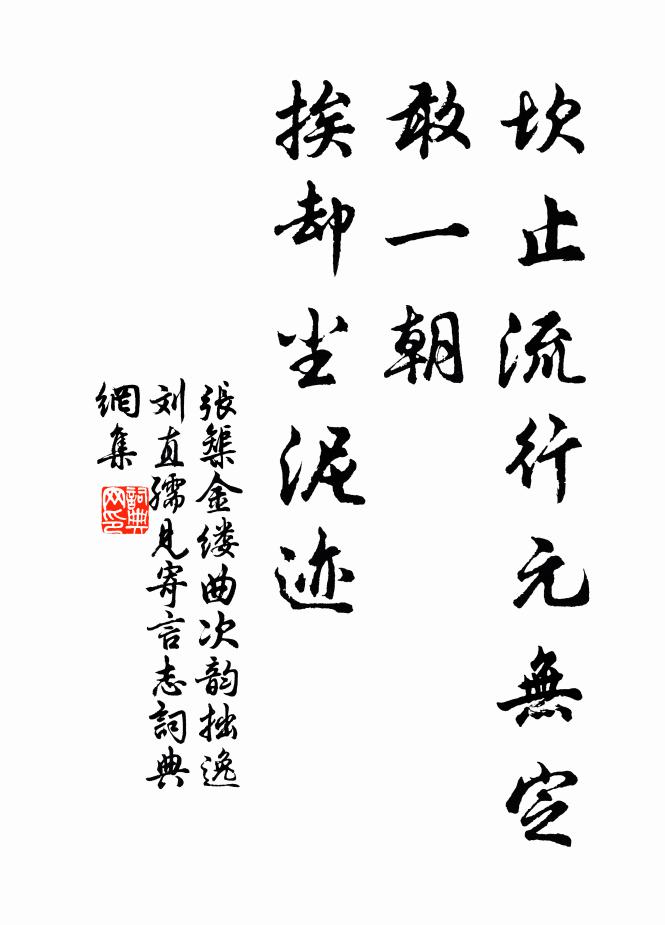 坎止流行元無定
敢一朝
挨却尘泥迹
張榘金缕曲次韵拙逸
刘直孺見寄言志詞典
網集
詞典网印